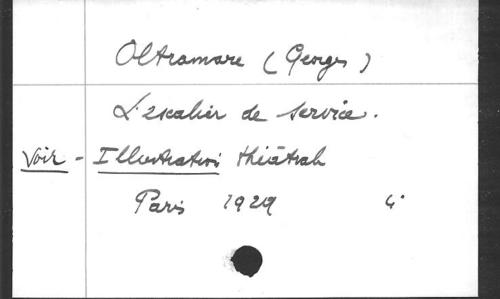 Oltramare (Georges)
L'escalier de service.
Voir - Illustration théâtrale
Paris 1929 4°